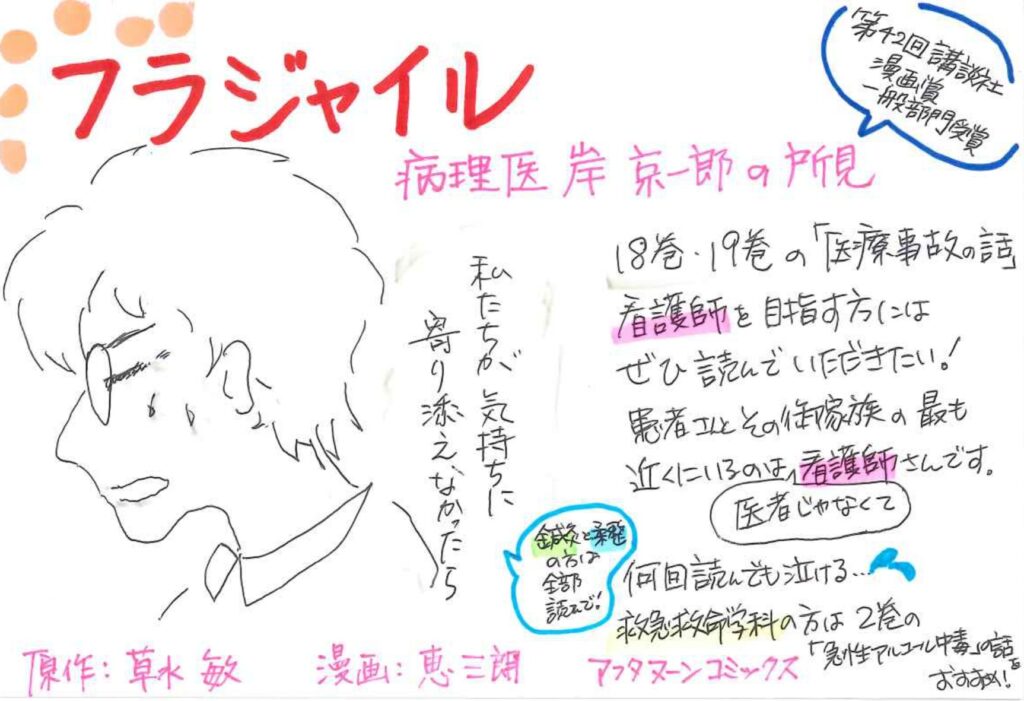 フラジャイル
病理医 岸 京一郎の所見
第42回 講談社
漫画賞
一般部門受賞
18巻・19巻の「医療事故の話」
看護師を目指す方には
ぜひ読んでいただきたい!
患者さんとその御家族の最も
近くにいるのは、看護師さんです。
医者じゃなくて
何回読んでも泣ける…
救急救命学科の方は2巻の
「急性アルコール中毒」の話を
おすすめ!
私たちが気持ちに
寄り添えなかったら
鍼灸と柔整
の方は
全部
読んで!
原作:草水 敏
漫画:恵三朗
アフタヌーンコミックス